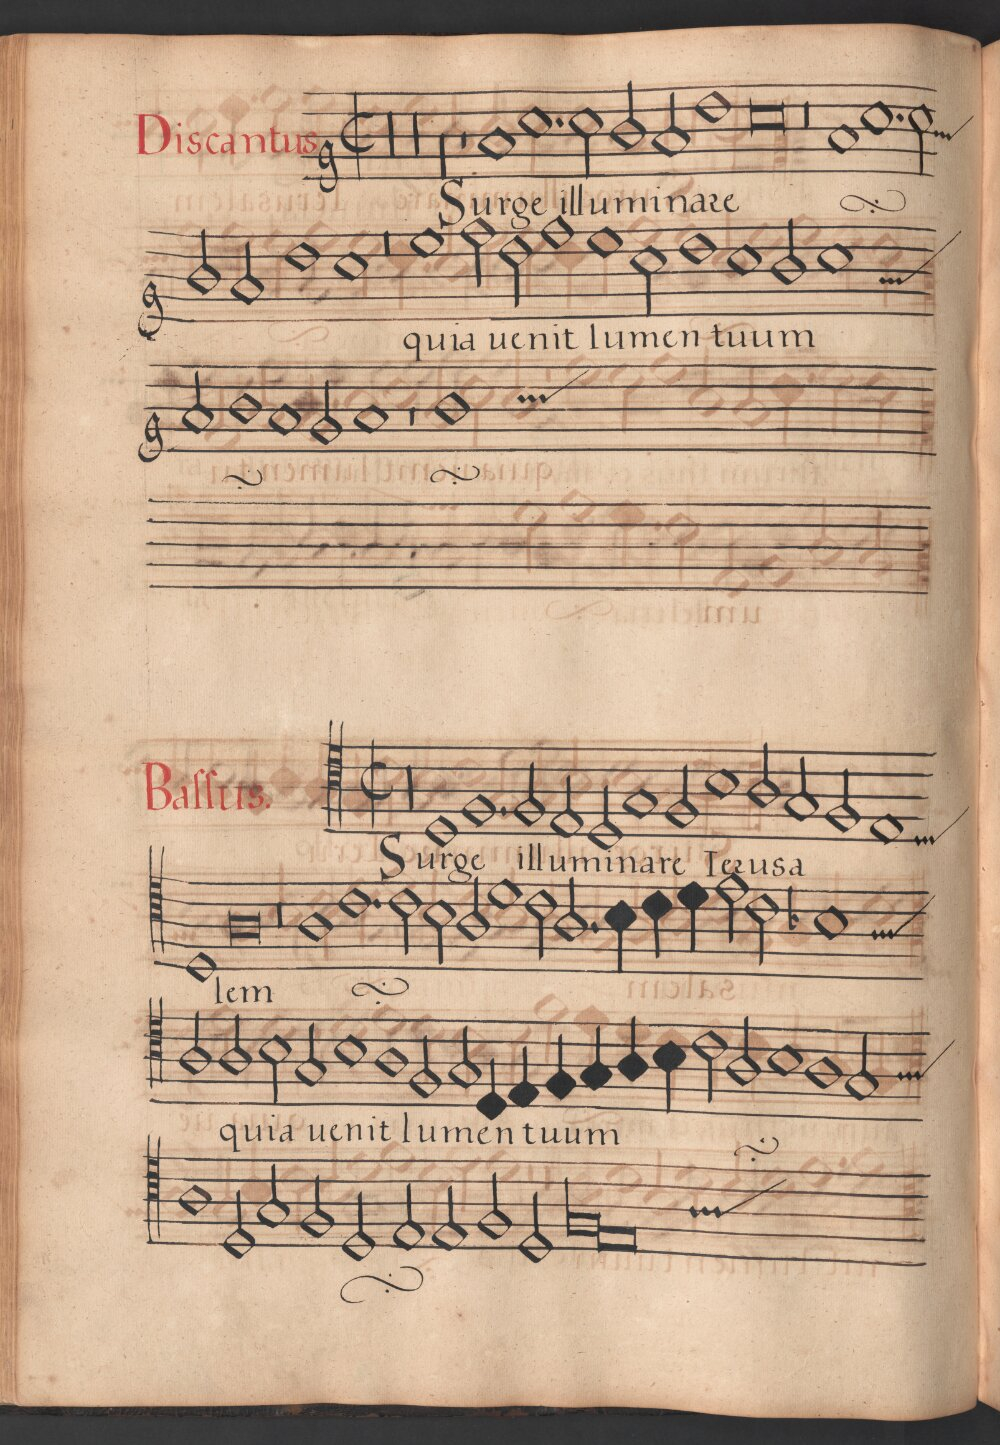 Discantus
Surge illuminare
quia uenit lumen tuum
Bassus.
Surge illuminare Ierusa
lem
quia uenit lumen tuum